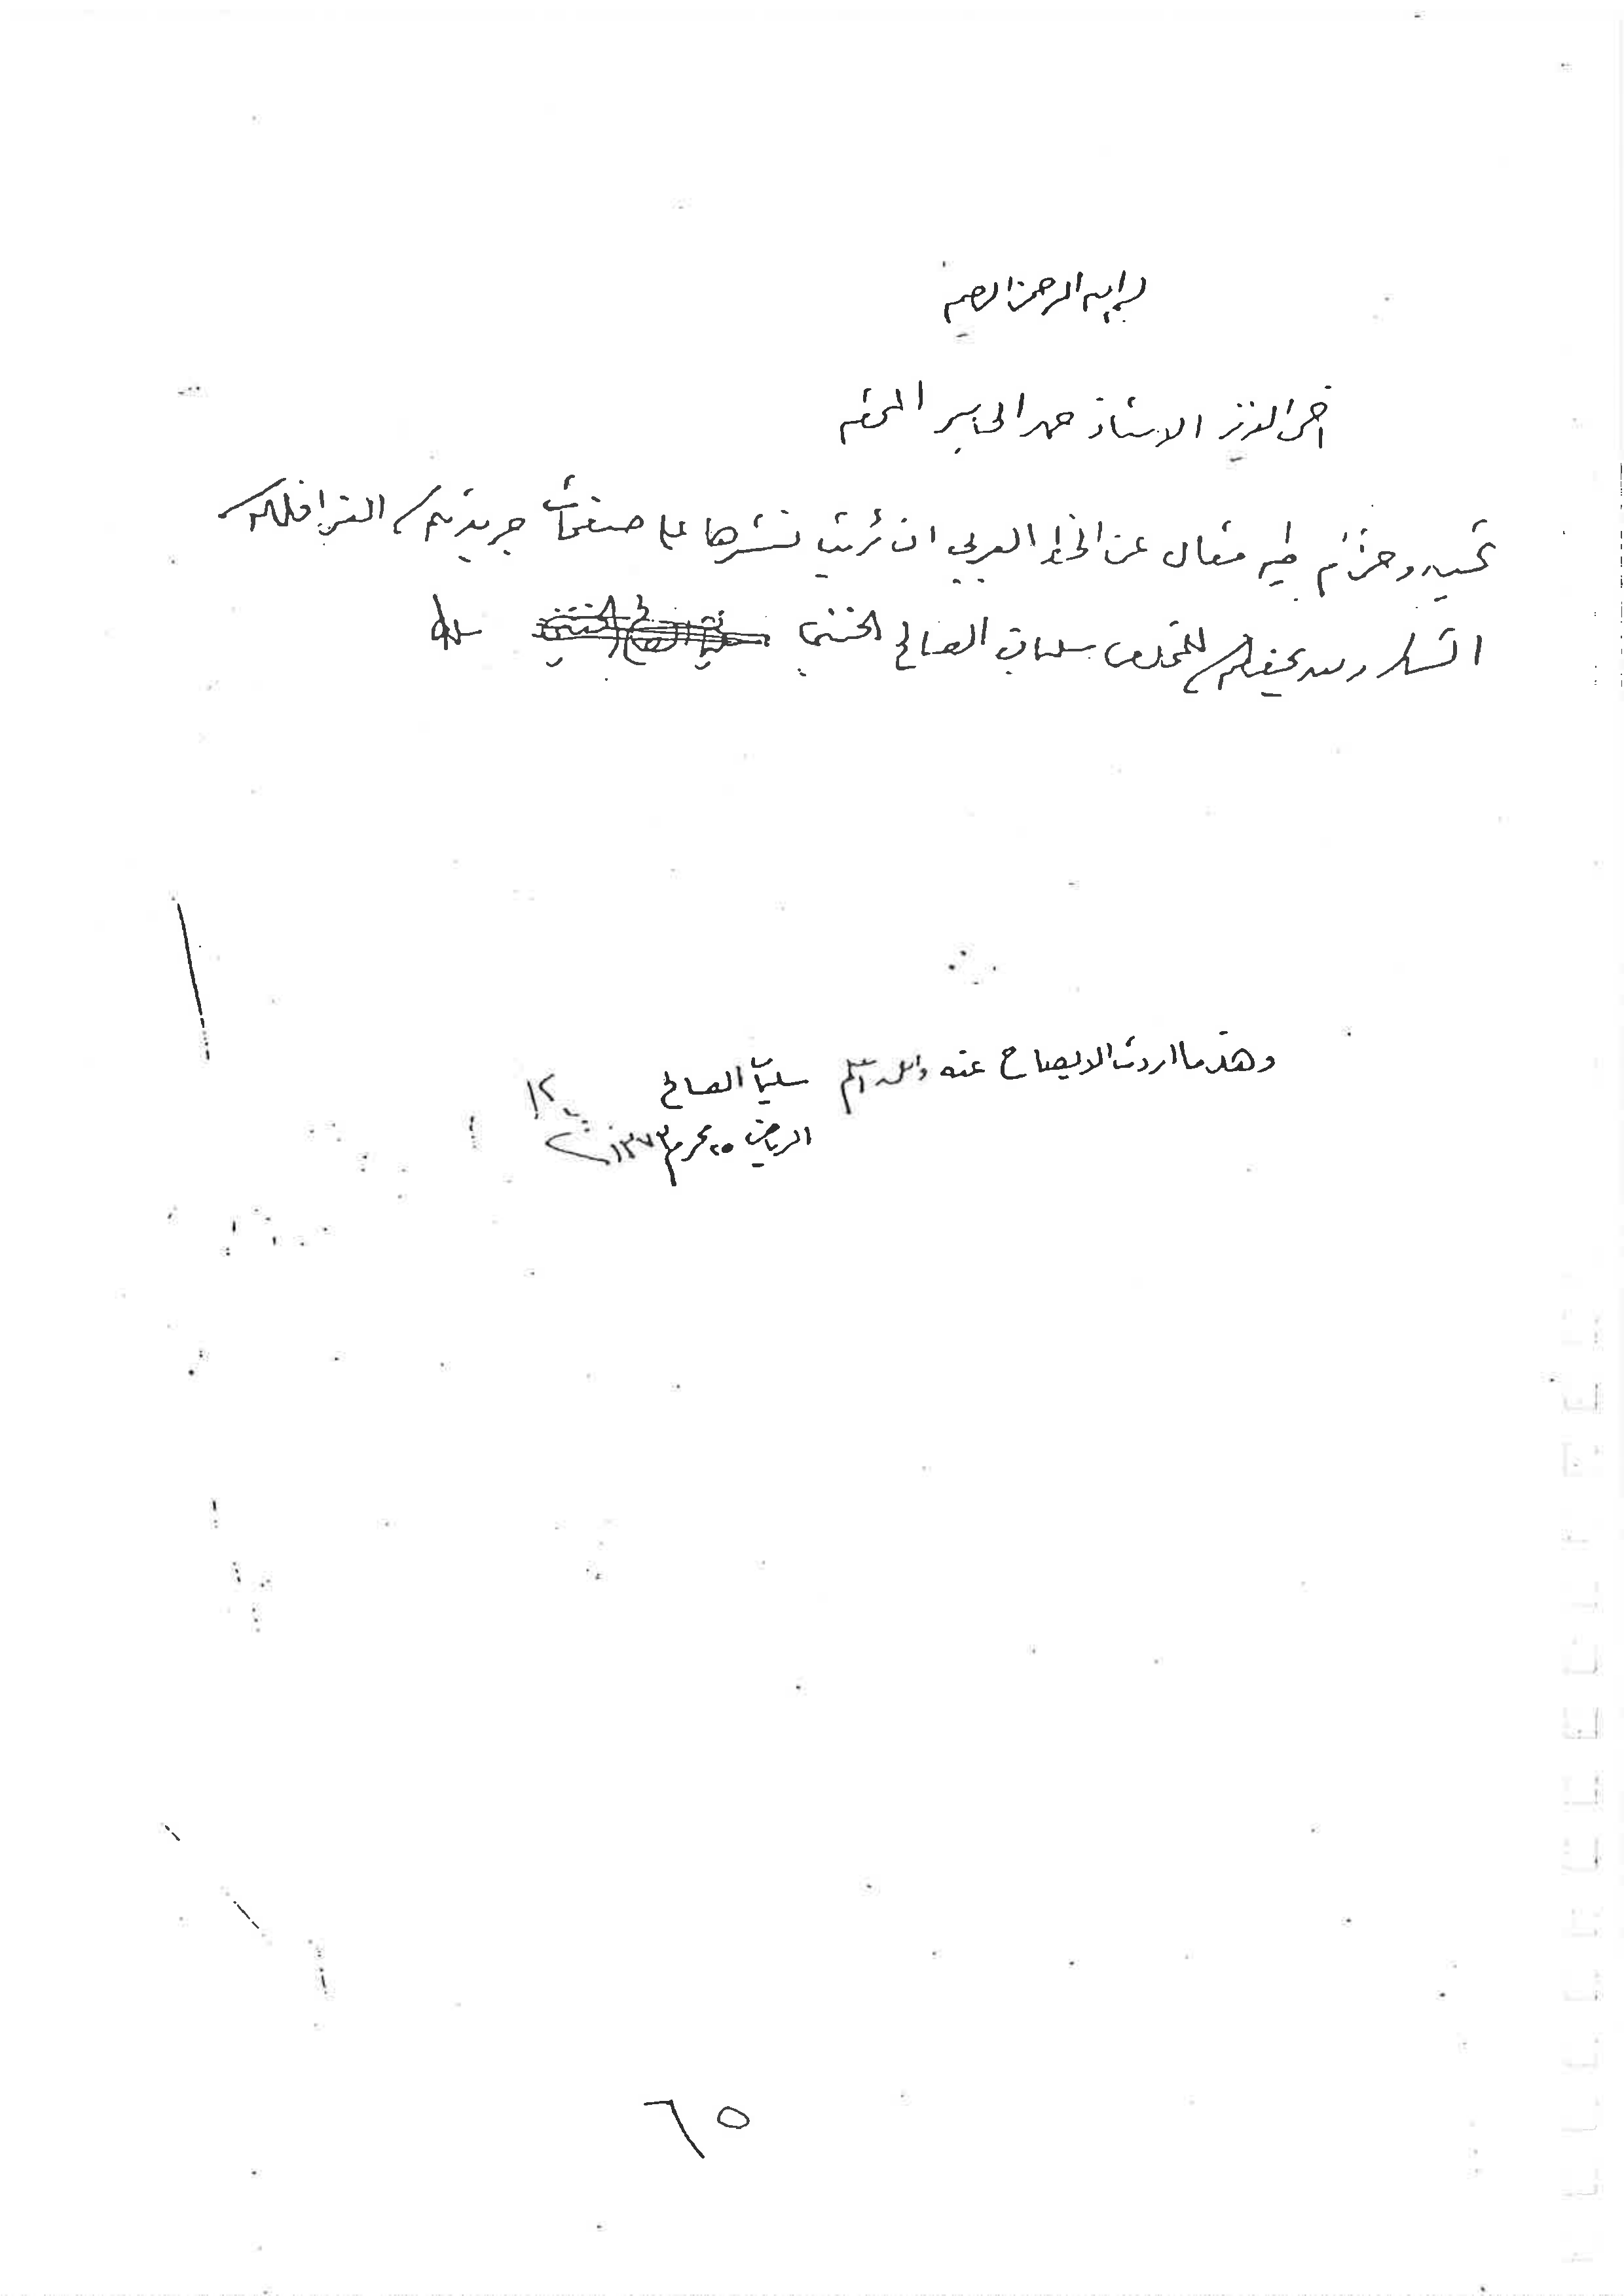 بسم الله الرحمن الرحيم
أخي العزيز الاستاذ حمد الجاسر المحترم
تحيه واحترام طيه مقال عن الخط العربي ان رئيت نشرها على صفحات جريدتكم الغرا فلكم
الشكر والله يحفظكم المخلص سليمان الصالح الخنيني
وهذ ما اردت الايضاح عنه والله اعلم سليمان الصالح
الرياض ٢٥ محرم ١٣٧٣
٦٥